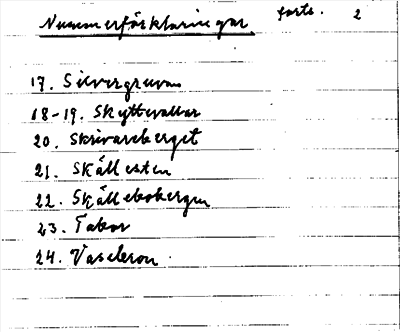 Nummerförklaringar forts. 2
17. Silvergruvan
18-19. Skyttevallar
20. Skrivareberget
21. Skällesten
22. Skällebobergen
23. Tabor
24. Vasabron.